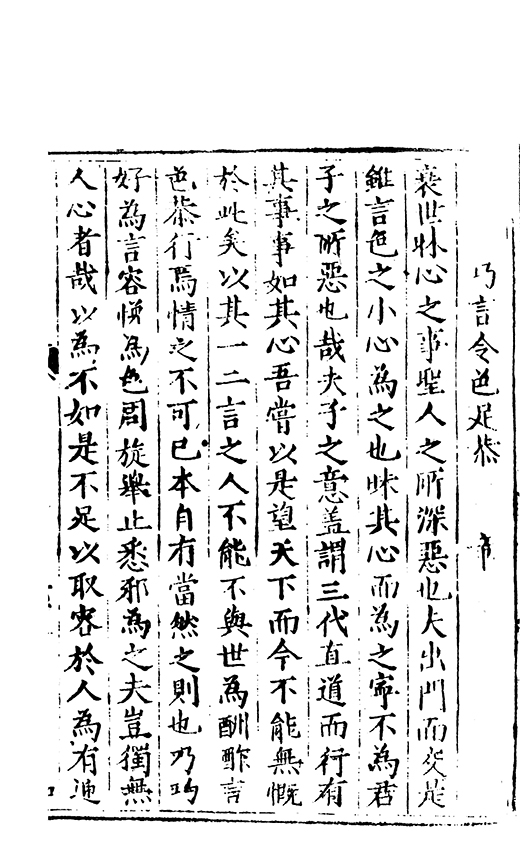 巧言令色足恭 章
衰世昧心之事聖人之所深惡也夫出門而交是
雖言色之小心為之也昧其心而為之寧不為君
子之所惡也哉夫子之意蓋謂三代直道而行有
其事事如其心吾嘗以是望天下而今不能無慨
於此矣以其一二言之人不能不與世為酬酢言
色恭行焉情之不可已本自有當然之則也乃巧
好為言容悅為色周旋舉止悉邪為之夫豈獨無
人心者哉以為不如是不足以取容於人為有迎